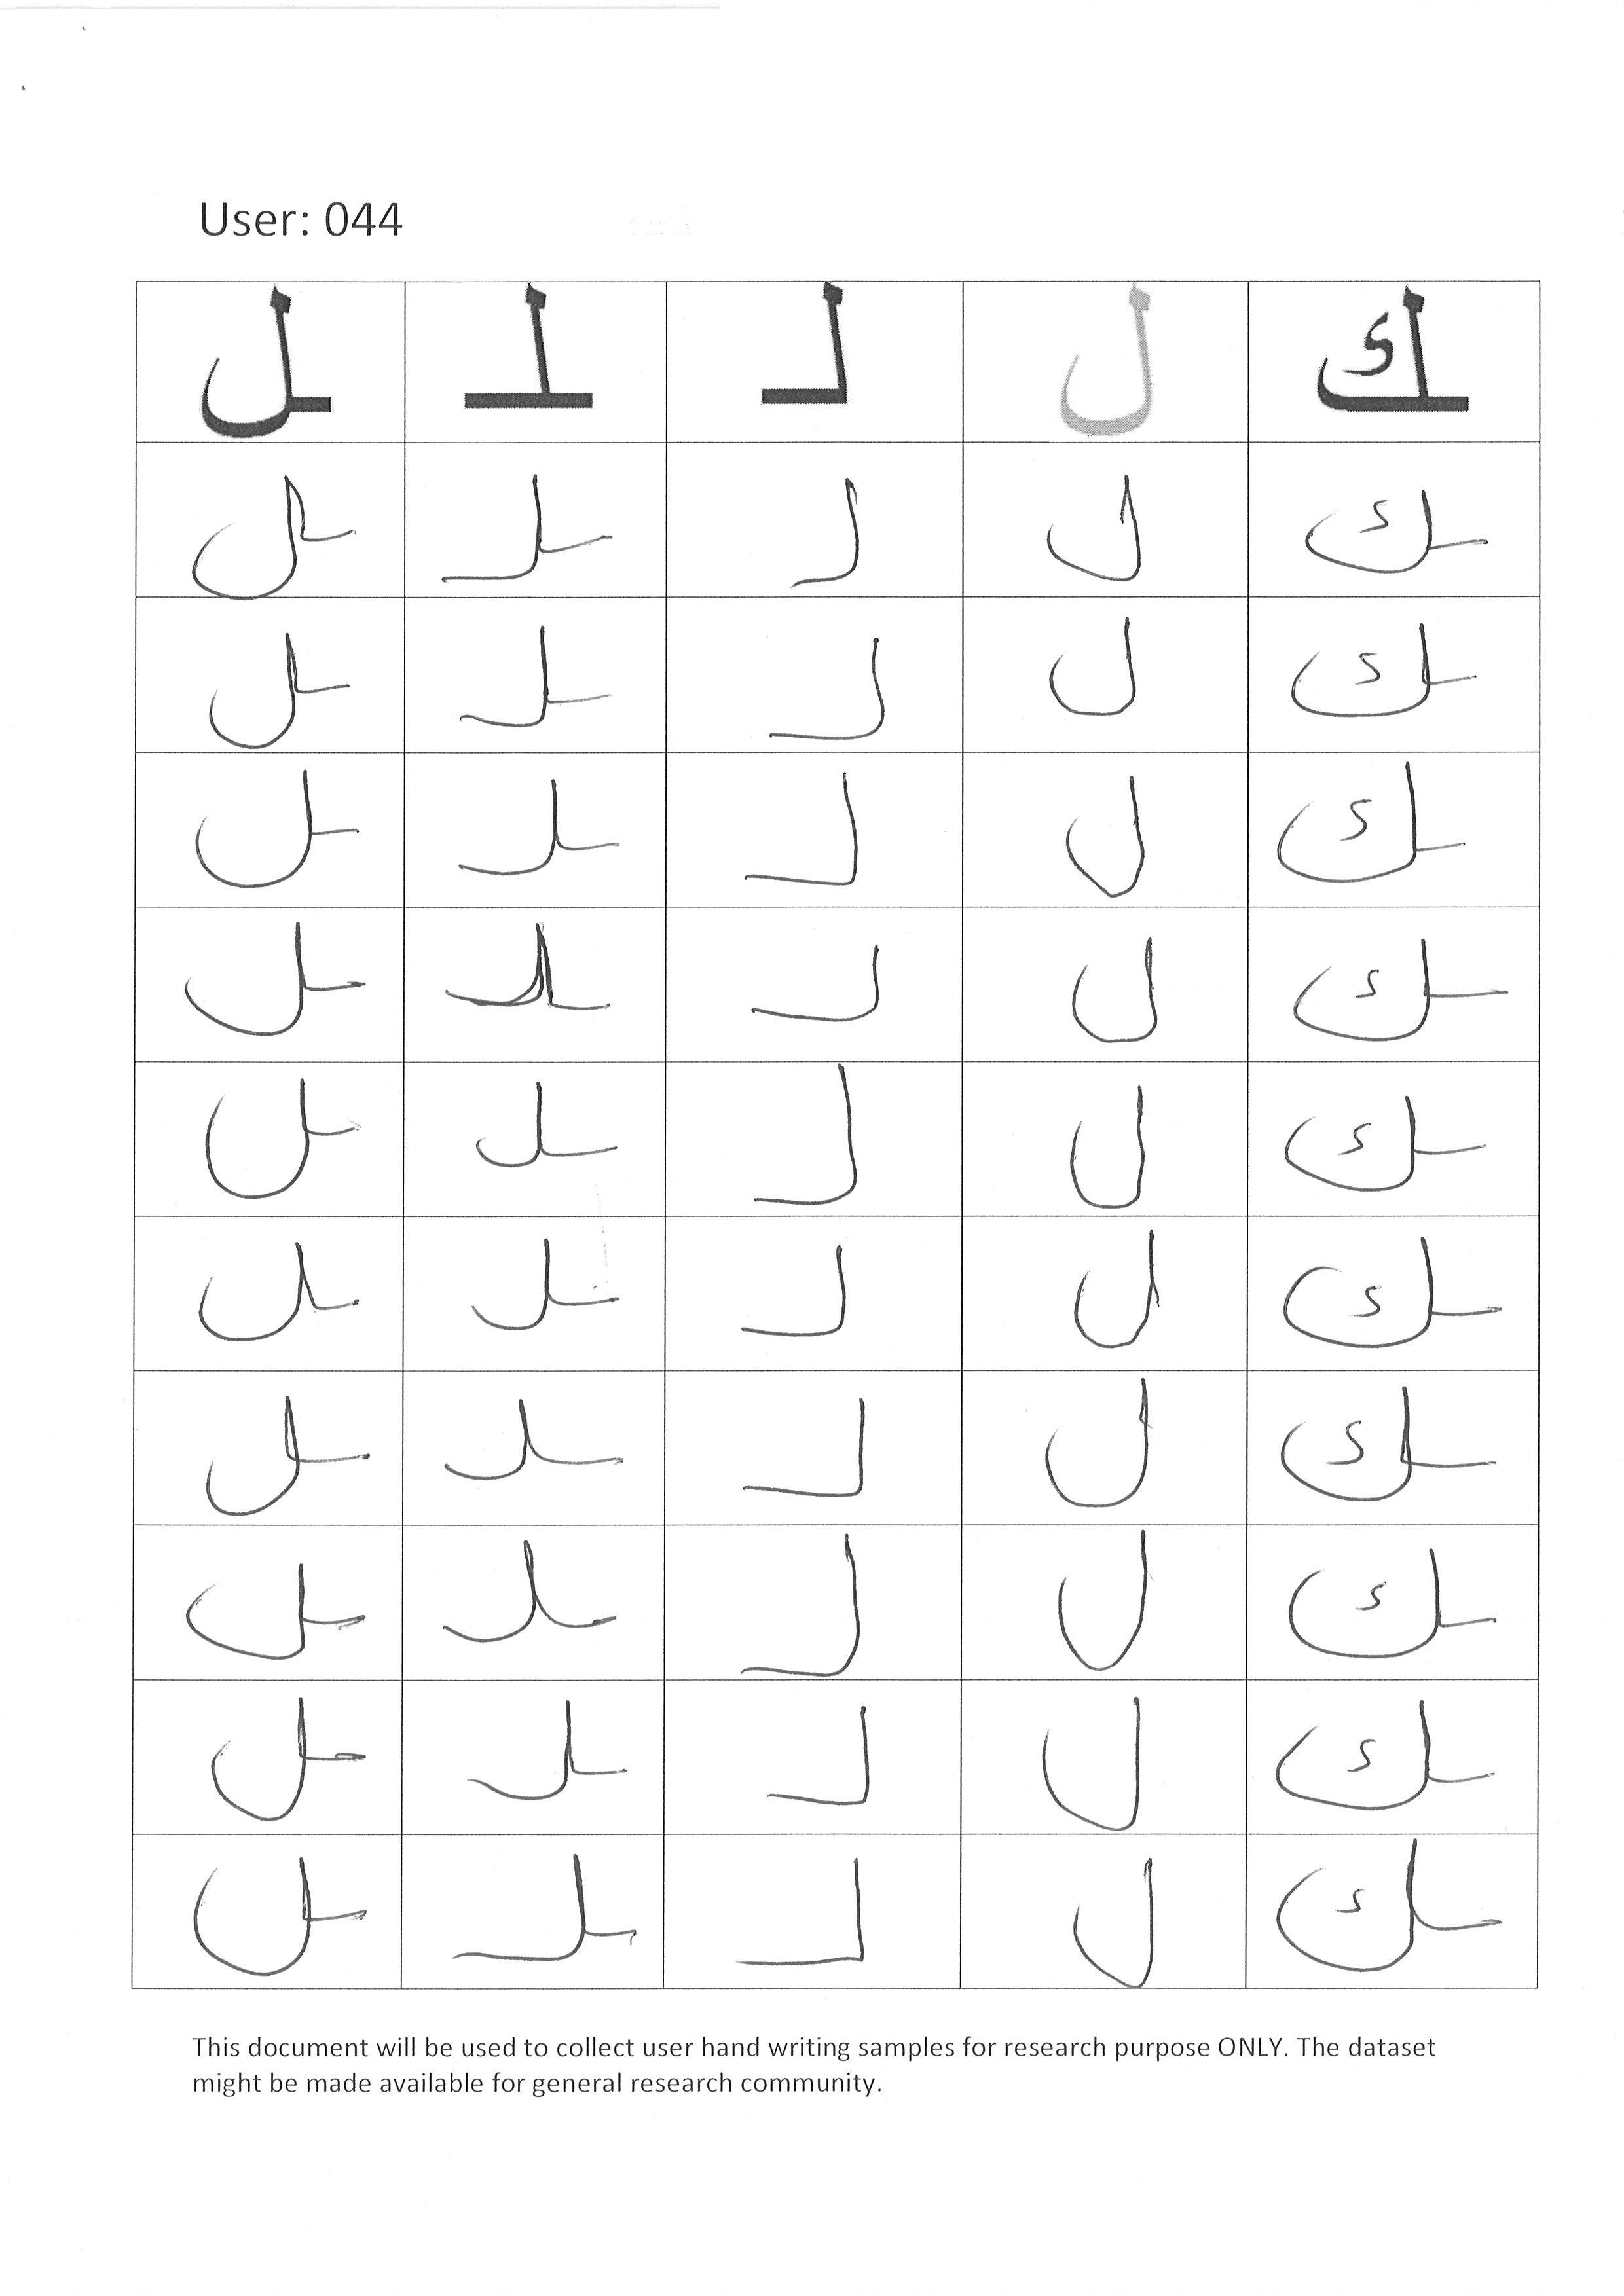 User: 044
ـك ل لـ ـلـ ـل
ـك ل لـ ـلـ ـل
ـك ل لـ ـلـ ـل
ـك ل لـ ـلـ ـل
ـك ل لـ ـلـ ـل
ـك ل لـ ـلـ ـل
ـك ل لـ ـلـ ـل
ـك ل لـ ـلـ ـل
ـك ل لـ ـلـ ـل
ـك ل لـ ـلـ ـل
ـك ل لـ ـلـ ـل
This document will be used to collect user hand writing samples for research purpose ONLY. The dataset
might be made available for general research community.